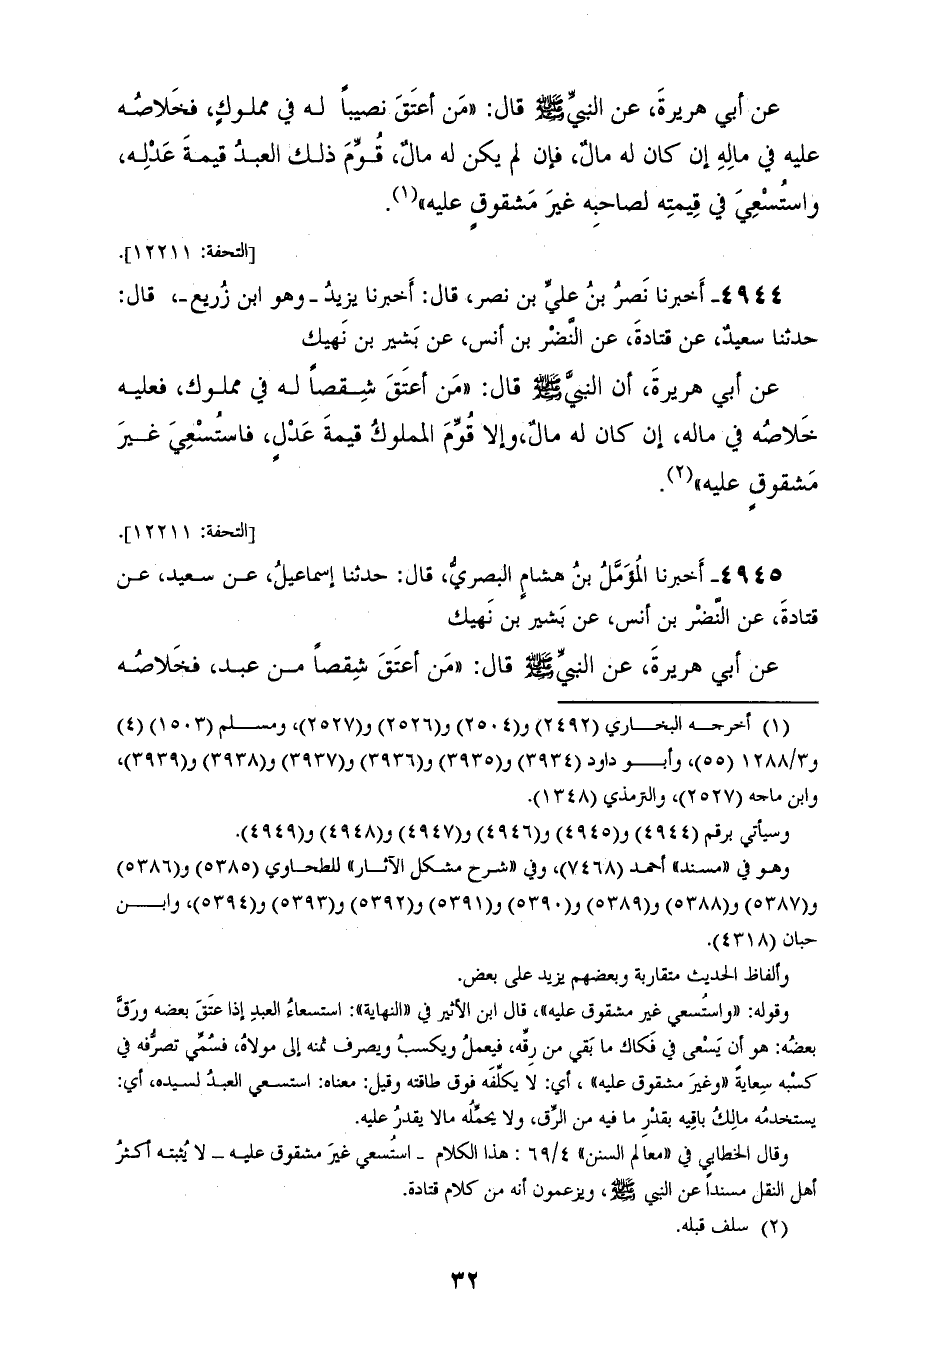 عن أبي هريرةَ، عن النبيِّ ﷺ قال: «مَن أعتَقَ نصيباً له في مملوكٍ، فخَلاصُه
عليه في مالِهِ إن كان له مالٌ، فإن لم يكن له مالٌ، قُوِّمَ ذلك العبدُ قيمةَ عَدْلِه،
واستُسْعِيَ في قِيمتِه لصاحبِه غيرَ مَشقوقٍ عليه»(١).
[التحفة: ١٢٢١١].
٤٩٤٤ـ أَخبرنا نَصرُ بنُ عليِّ بن نصر، قال: أَخبرنا يزيدُ ـ وهو ابن زُريع ـ، قال:
حدثنا سعيدٌ، عن قتادةَ، عن النَّضْر بن أنس، عن بَشير بن نَهيك
عن أبي هريرةَ، أن النبيَّ ﷺ قال: «مَن أعتَقَ شِقصاً له في مملوك، فعليه
خَلاصُه في ماله، إن كان له مالٌ، وإلا قُوِّمَ المملوكُ قيمةَ عَدْلٍ، فاستُسْعِيَ غيرَ
مَشقوقٍ عليه»(٢).
[التحفة: ١٢٢١١].
٤٩٤٥ـ أَخبرنا المُؤَمَّلُ بنُ هشامٍ البصريُّ، قال: حدثنا إسماعيلُ، عن سعيد، عن
قتادةَ، عن النَّضْر بن أنس، عن بَشير بن نَهيك
عن أبي هريرةَ، عن النبيِّ ﷺ قال: «مَن أعتَقَ شِقصاً من عبد، فخَلاصُه
(١) أخرجه البخاري (٢٤٩٢) و(٢٥٠٤) و(٢٥٢٦) و(٢٥٢٧)، ومسلم (١٥٠٣) (٤)
و١٢٨٨/٣ (٥٥)، وأبو داود (٣٩٣٤) و(٣٩٣٥) و(٣٩٣٦) و(٣٩٣٧) و(٣٩٣٨) و(٣٩٣٩)،
وابن ماجه (٢٥٢٧)، والترمذي (١٣٤٨).
وسيأتي برقم (٤٩٤٤) و(٤٩٤٥) و(٤٩٤٦) و(٤٩٤٧) و(٤٩٤٨) و(٤٩٤٩).
وهو في «مسند» أحمد (٧٤٦٨)، وفي «شرح مشكل الآثار» للطحاوي (٥٣٨٥) و(٥٣٨٦)
و(٥٣٨٧) و(٥٣٨٨) و(٥٣٨٩) و(٥٣٩٠) و(٥٣٩١) و(٥٣٩٢) و(٥٣٩٣) و(٥٣٩٤)، وابن
حبان (٤٣١٨).
وألفاظ الحديث متقاربة وبعضهم يزيد على بعض.
وقوله: «واستُسعي غير مشقوق عليه»، قال ابن الأثير في «النهاية»: استسعاءُ العبدِ إذا عتَقَ بعضه ورَقَّ
بعضُه: هو أن يَسْعى في فَكاك ما بَقي من رِقِّه، فيعملُ ويكسبُ ويصرف ثمنه إلى مولاهُ، فسُمِّي تصرُّفه في
كسْبه سِعايةً «وغيرَ مشقوق عليه» ، أي: لا يكلِّفَه فوق طاقته وقيل: معناه: استسعي العبدُ لسيده، أي:
يستخدمُه مالِكُ باقيه بقدْرِ ما فيه من الرِّق، ولا يحمِّله مالا يقدرُ عليه.
وقال الخطابي في «معالم السنن» ٦٩/٤ : هذا الكلام ـ استُسعي غيرَ مشقوق عليه ـ لا يُثبته أكثرُ
أهل النقل مسنداً عن النبي ﷺ ، ويزعمون أنه من كلام قتادة.
(٢) سلف قبله.
٣٢